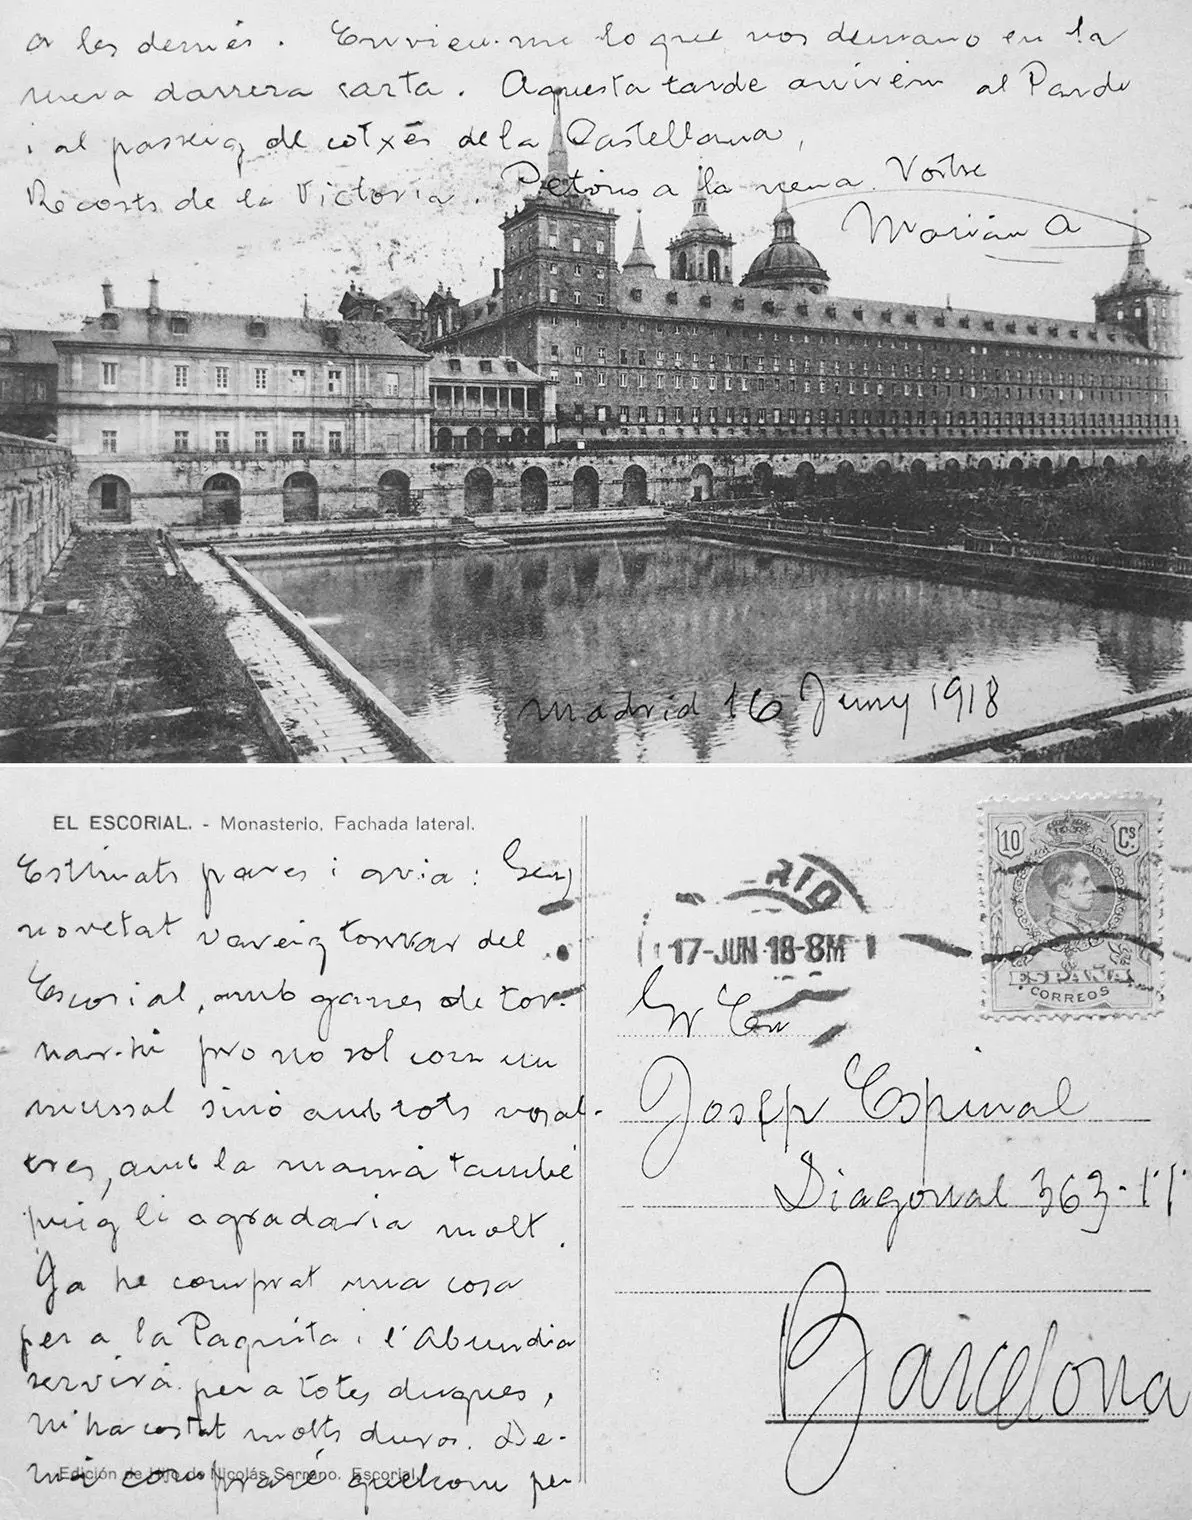 a les demés. Envieu-me lo que vos demano en la
meva darrera carta. Aquesta tarde anirém al Pardo
i al passeig de cotxes de la Castellana,
Recorts de la Victoria. Petons a la nena. Vostre
Marián
Madrid 16 Juny 1918
EL ESCORIAL. - Monasterio. Fachada lateral.
Estimats pares i avia: Sens
novetat vareig tornar del
Escorial, amb ganes de tor-
nar-hi pro no sol com un
mussol sinó amb tots vosal-
tres, amb la mamá també
puig li agradaria molt.
Ja he comprat una cosa
per a la Paquita i l'Abundia
servirá per a totes dugues,
m'ha costat molts duros. De-
má compraré quelcom per
Edición de Hijo de Nicolás Serrano. Escorial.
10 Cs.
ESPAÑA
CORREOS
RID
17-JUN 18-8M
Sr En
Josep Espinal
Diagonal 363-
Barcelona